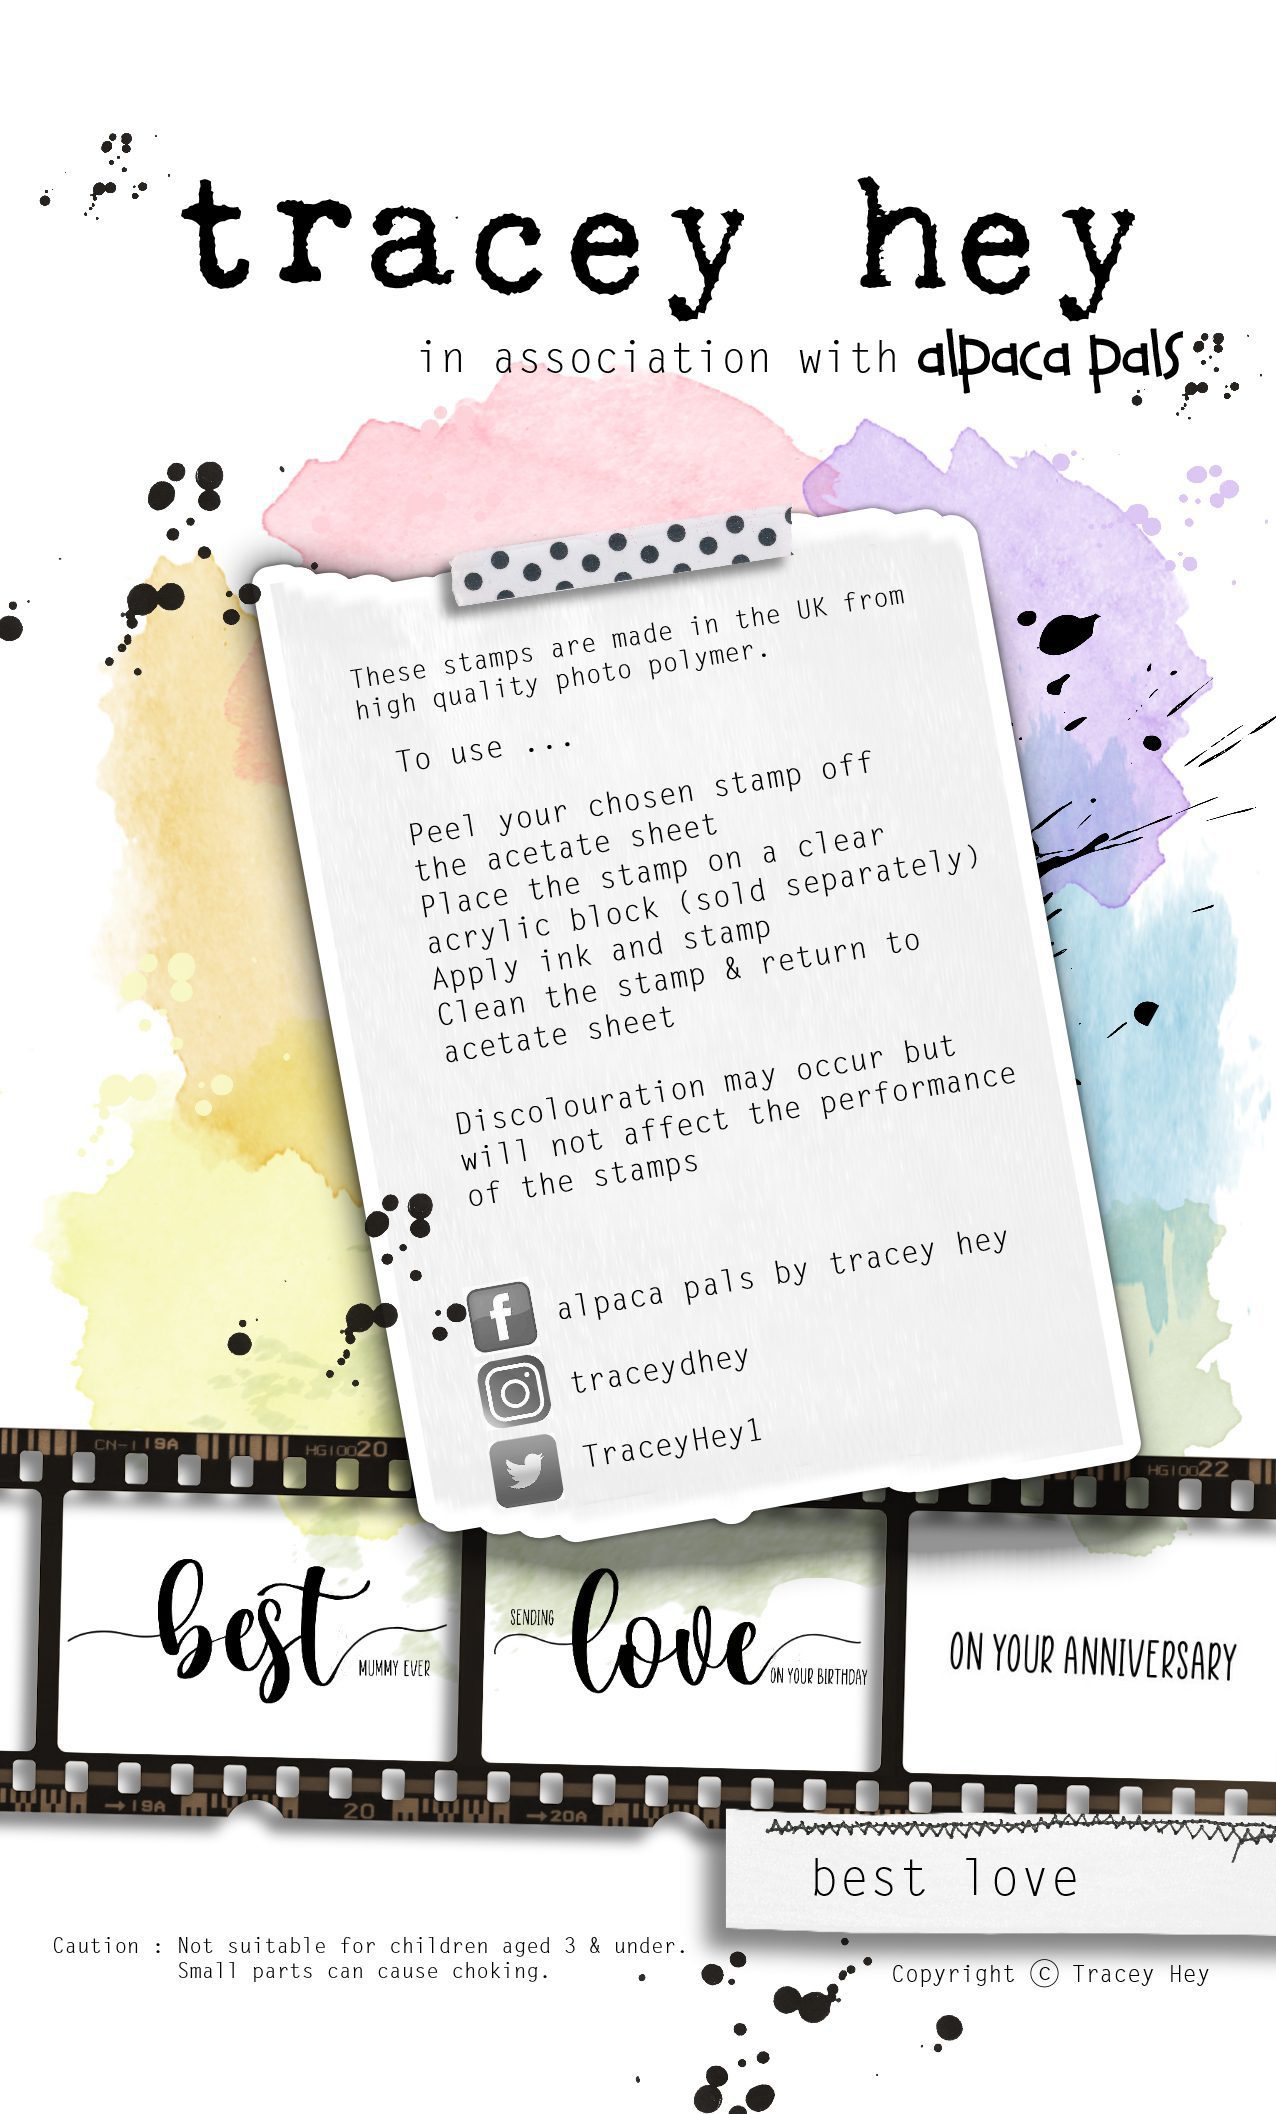 tracey hey
in association with alpaca pals
These stamps are made in the UK from
high quality photo polymer.
To use ...
Peel your chosen stamp off
the acetate sheet
Place the stamp on a clear
acrylic block (sold separately)
Apply ink and stamp
Clean the stamp & return to
acetate sheet
Discolouration may occur but
will not affect the performance
of the stamps
alpaca pals by tracey hey
traceydhey
TraceyHey1
CN-1 19A
HG10020
HG10022
best
MUMMY EVER
SENDING
love
ON YOUR BIRTHDAY
ON YOUR ANNIVERSARY
→19A
20
→20A
best love
Caution : Not suitable for children aged 3 & under.
Small parts can cause choking.
Copyright © Tracey Hey